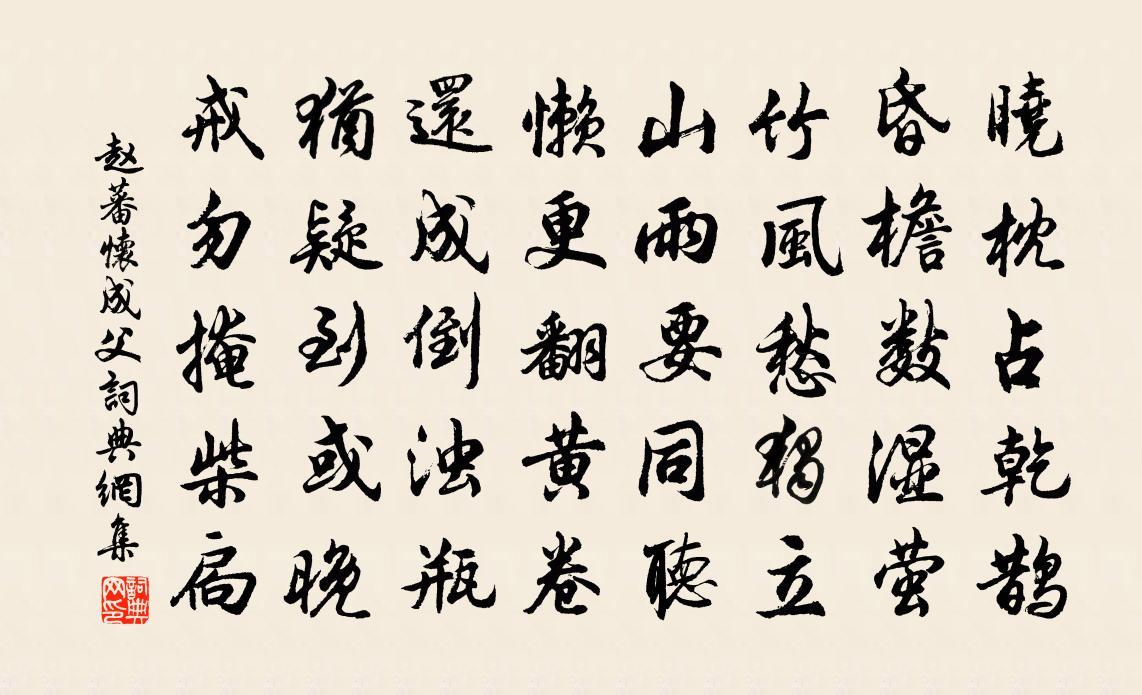 曉枕占乾鵲
昏檐數濕螢
竹風愁獨立
山雨要同聽
懶更翻黃卷
還成倒浊瓶
猶疑到或晚
戒勿掩柴扃
赵蕃懷成父詞典網集
詞典网印